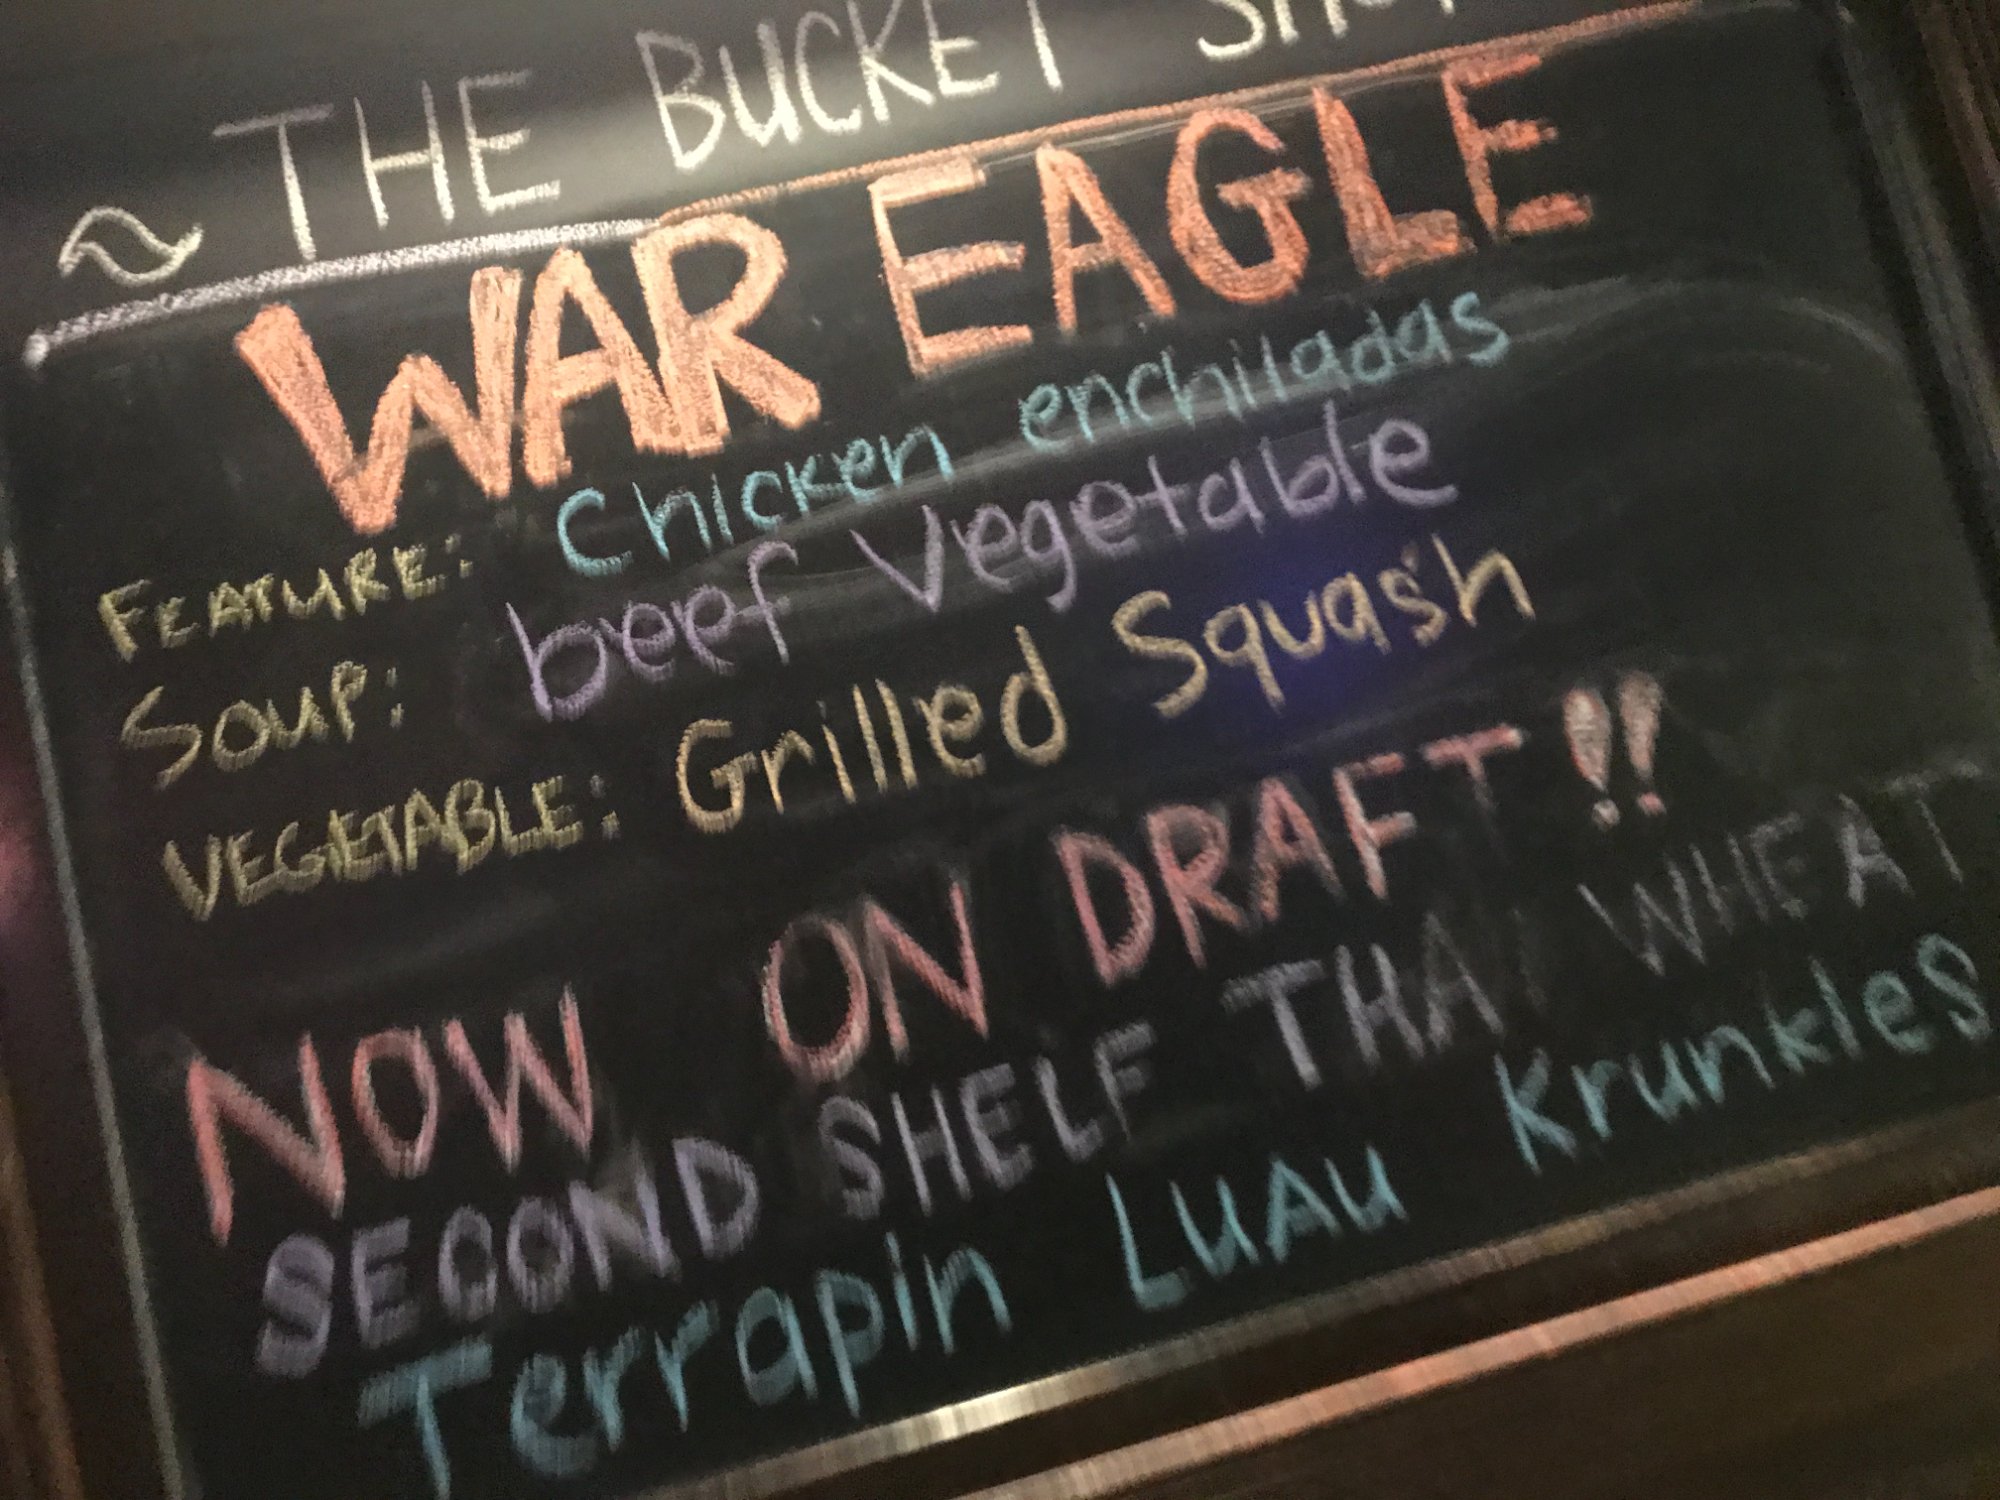 ~ THE BUCKET SHOP
WAR EAGLE
FEATURE: Chicken enchiladas
SOUP: beef vegetable
VEGETABLE: Grilled Squash
NOW ON DRAFT!!
SECOND SHELF THAT WHEAT
Terrapin LUAU Krunkles